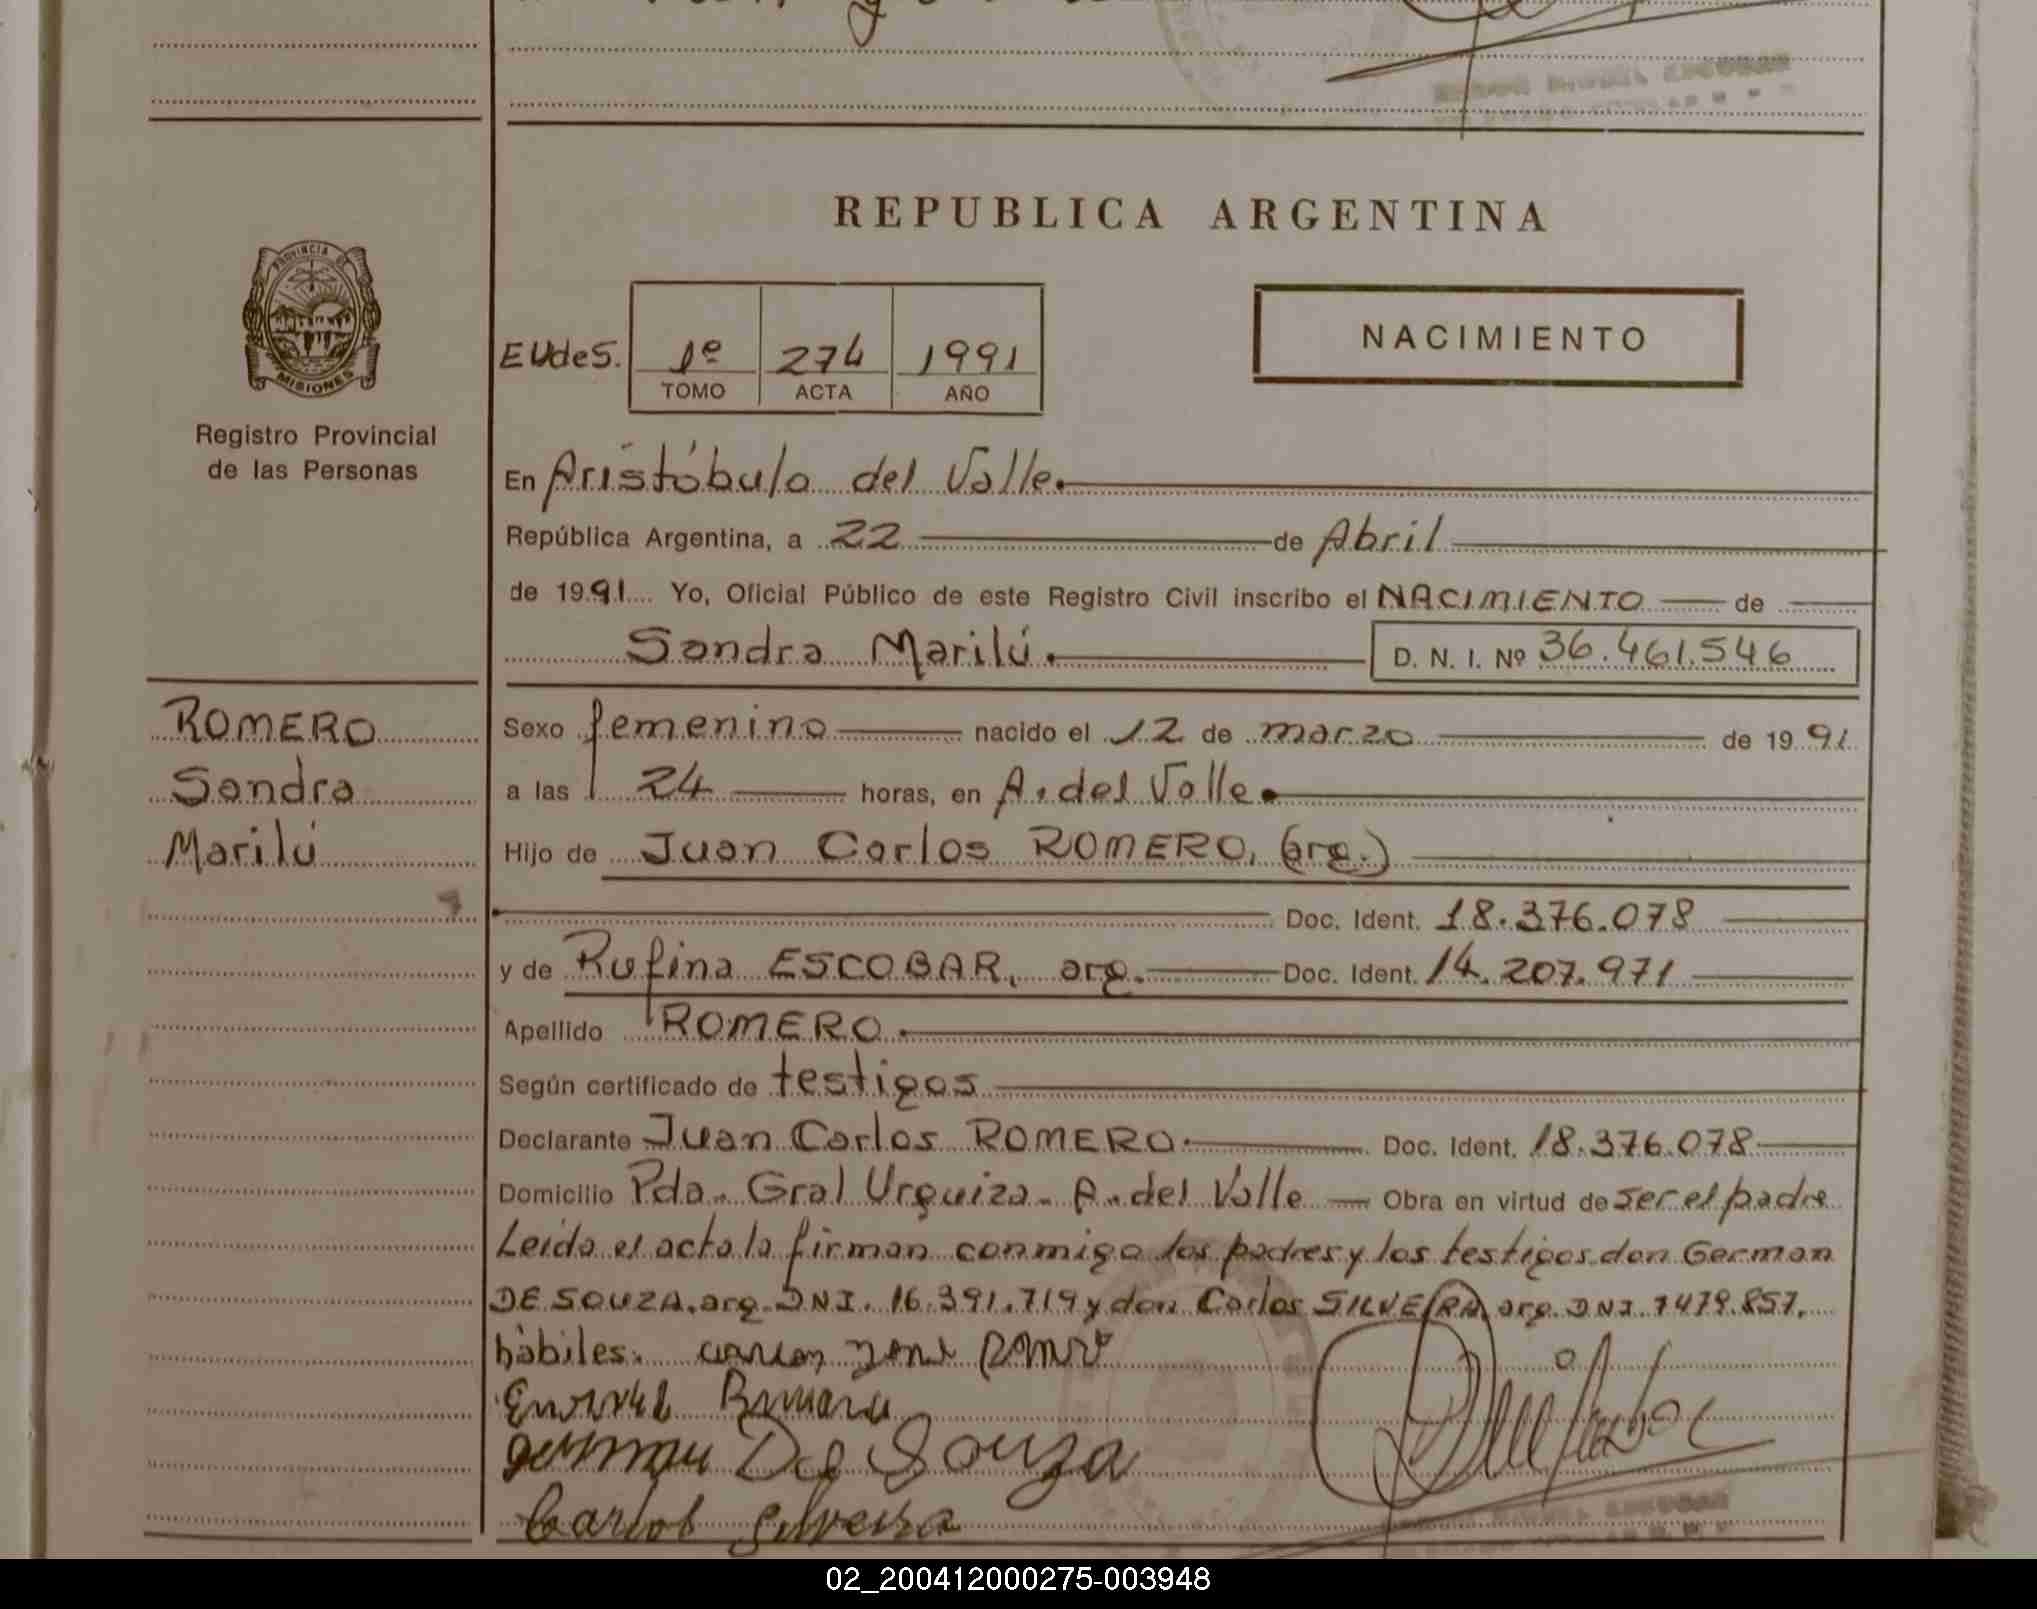 REPUBLICA ARGENTINA
PROVINCIA DE
MISIONES
Registro Provincial
de las Personas
EUdeS.
1º 274 1991
TOMO ACTA AÑO
NACIMIENTO
En Aristóbulo del Valle.
República Argentina, a 22 de Abril
de 1991 Yo, Oficial Público de este Registro Civil inscribo el NACIMIENTO de
Sandra Marilú. D. N. I. Nº 36.461.546
ROMERO
Sandra
Marilú
Sexo femenino nacido el 12 de marzo de 1991
a las 24 horas, en A. del Valle.
Hijo de Juan Carlos ROMERO, (arg.)
Doc. Ident. 18.376.078
y de Rufina ESCOBAR, arg. Doc. Ident. 14.207.971
Apellido ROMERO.
Según certificado de testigos
Declarante Juan Carlos ROMERO. Doc. Ident. 18.376.078
Domicilio Pda. Gral Urquiza. A. del Valle Obra en virtud de ser el padre
Leida el acta la firman conmigo los padres y los testigos don German
DE SOUZA, arg. DNI. 16.391.719 y don Carlos SILVEIRA, arg. DNI 7479.857,
hábiles.
De Souza
Carlos Silveira
02_200412000275-003948